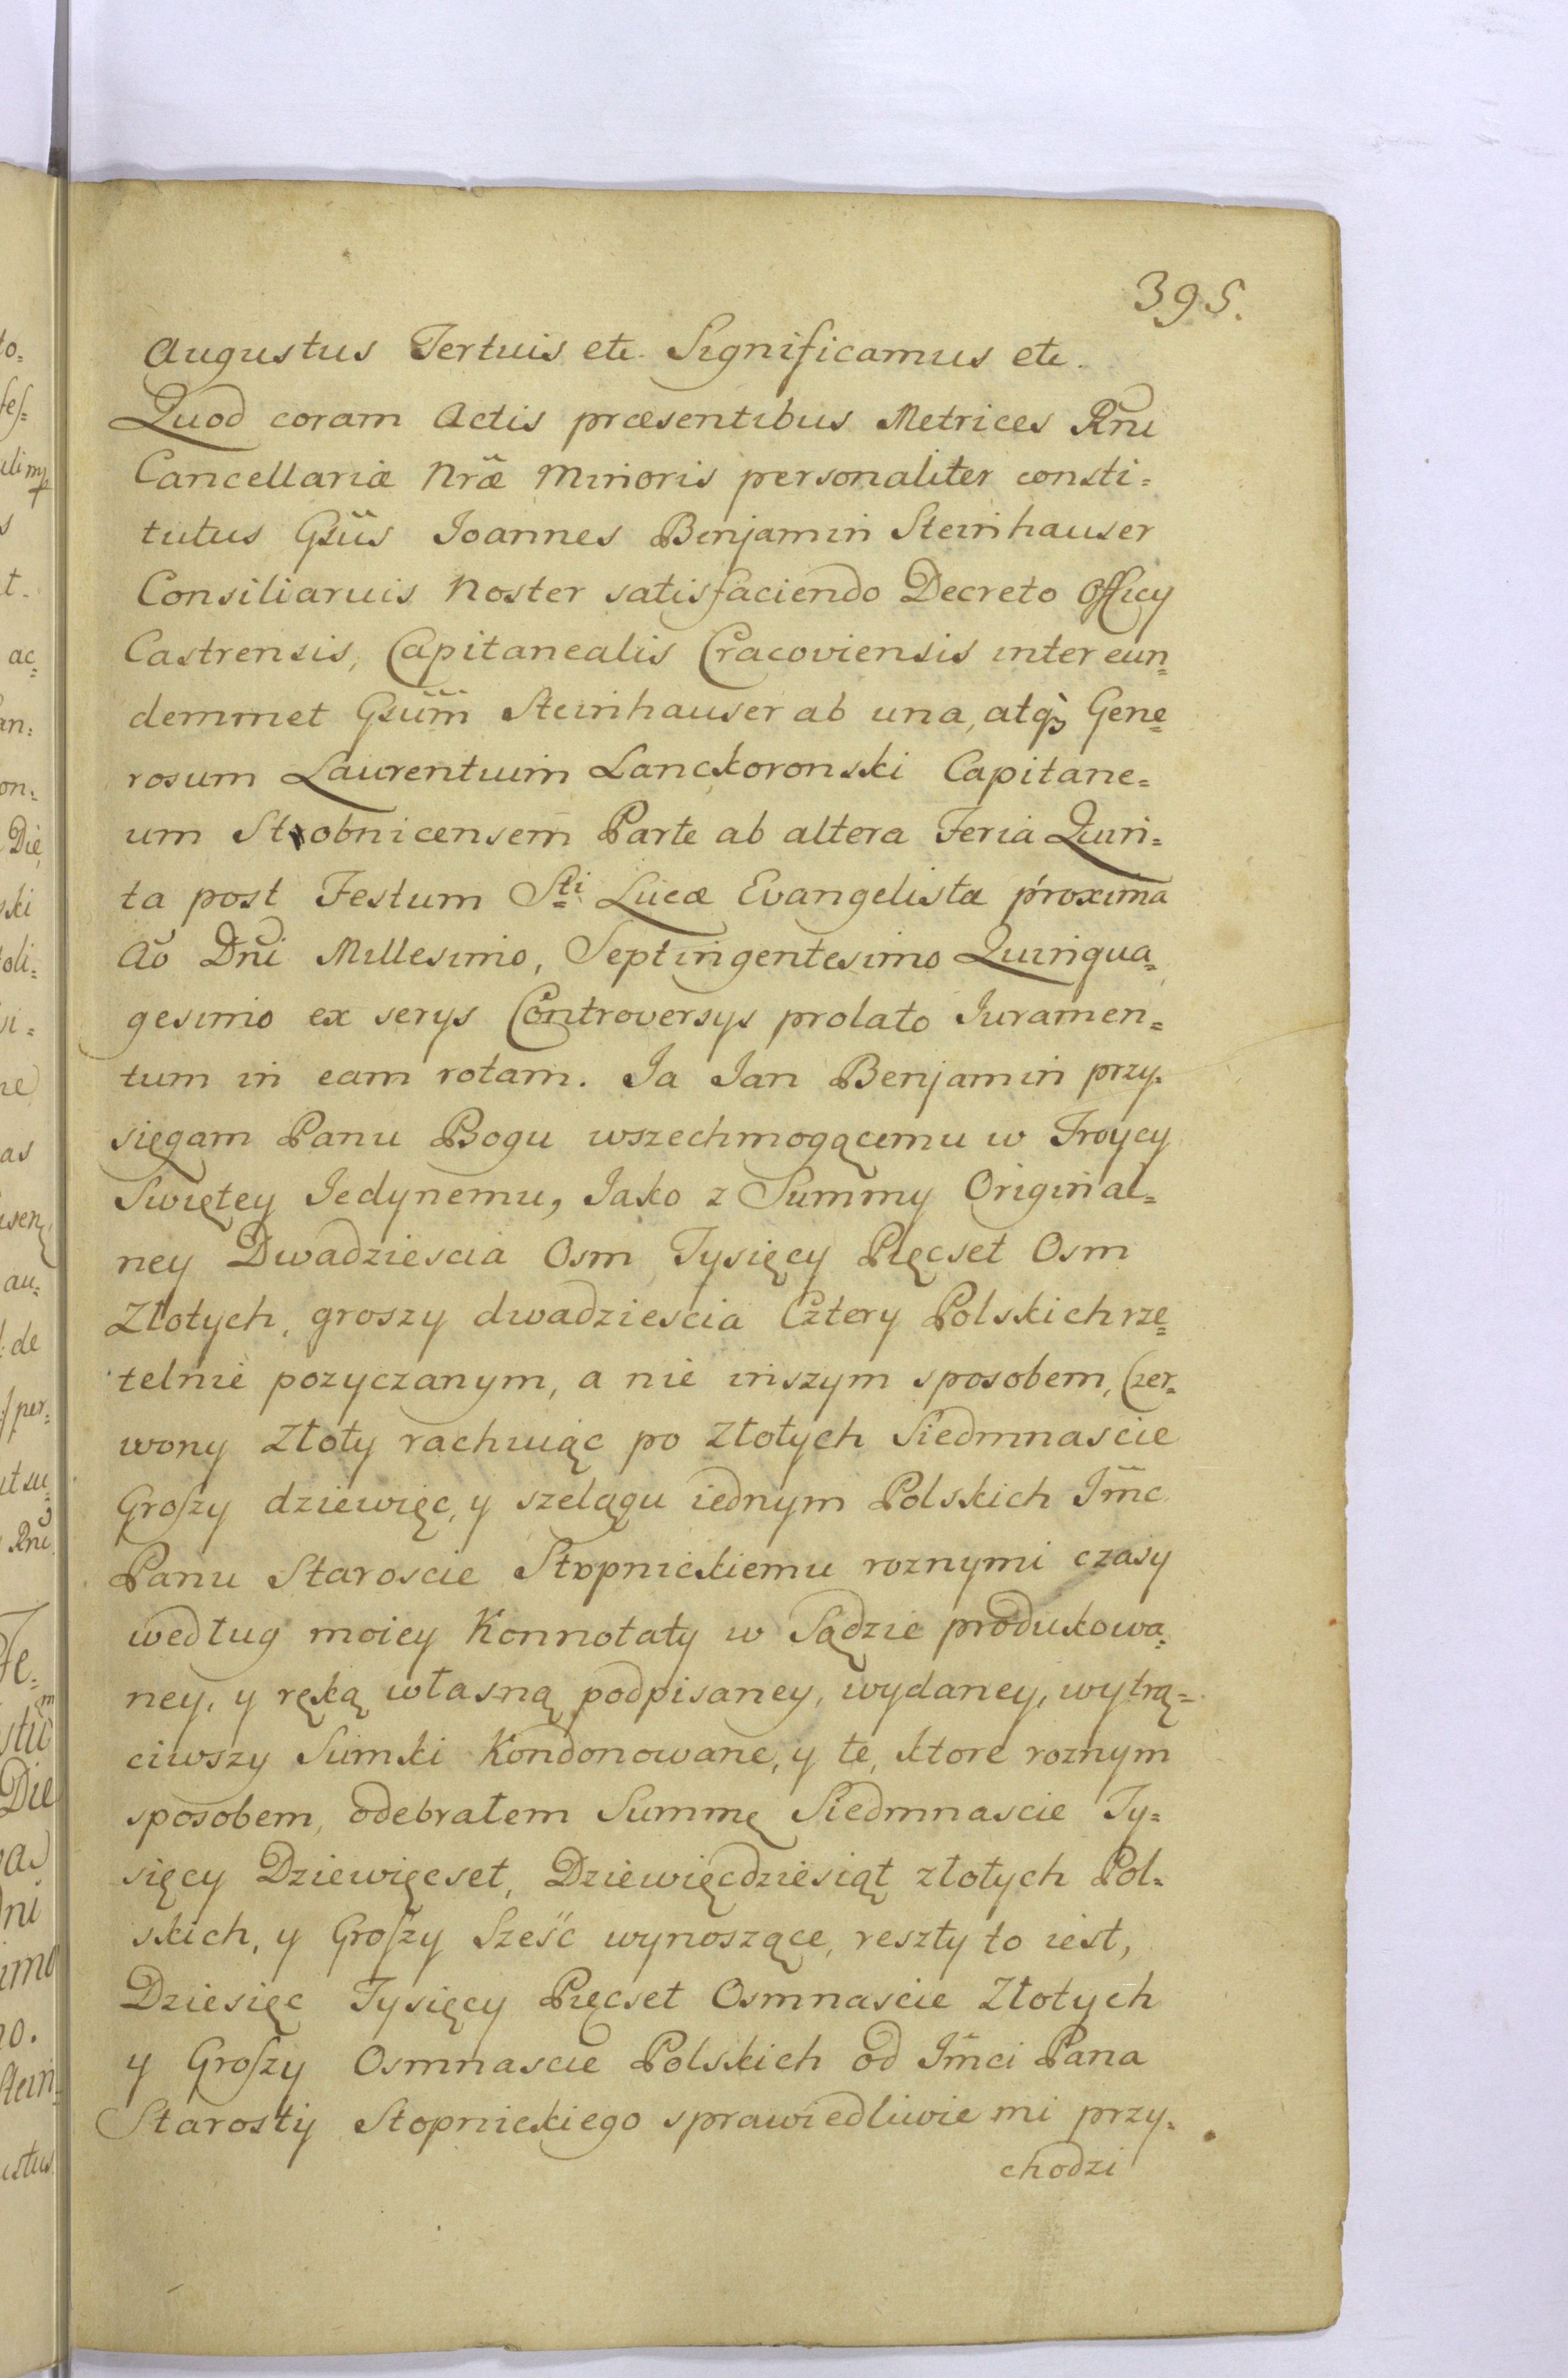 395.
Augustus Tertius etc. Significamus etc.
Quod coram Actis præsentibus Metrices Rñi
Cancellariæ Nræ Minoris personaliter consti=
tutus Gsus Joannes Benjamin Steinhauser
Consiliarius Noster satisfaciendo Decreto Officy
Castrensis, Capitanealis Cracoviensis inter eun=
demmet Gsum Steinhauser ab una, atq; Gene=
rosum Laurentium Lanckoronski Capitane=
um Stobnicensem Parte ab altera Feria Quin=
ta post Festum Sti Lucæ Evangelistæ proxima
Aõ Dñi Millesimo, Septingentesimo Quinqua=
gesimo ex serys Controversys prolato Juramen=
tum in eam rotam. Ja Jan Benjamin przy=
sięgam Panu Bogu wszechmogącemu w Troycy
Swiętey Jedynemu, Jako z Summy Original=
ney Dwadziescia Osm Tysięcy Pięcset Osm
Złotych, groszy dwadziescia Cztery Polskich rze=
telnie pozyczanym, a nie inszym sposobem, Czer=
wony Złoty rachuiąc po Złotych Siedmnascie
Groszy dziewięc, y szelągu iednym Polskich Jmc
Panu Staroscie Stopnickiemu roznymi czasy
według moiey Konnotaty w Sądzie produkowa=
ney, y ręką własną podpisaney, wydaney, wytrą=
ciwszy Sumki Kondonowane, y te, ktore roznym
sposobem, odebrałem Summę Siedmnascie Ty=
sięcy Dziewięcset, Dziewięcdziesiąt złotych Pol=
skich, y Groszy Sześc wynoszące, reszty to iest,
Dziesięc Tysięcy Pięcset Osmnascie Złotych
y Groszy Osmnascie Polskich od Jmci Pana
Starosty Stopnickiego sprawiedliwie mi przy=
chodzi